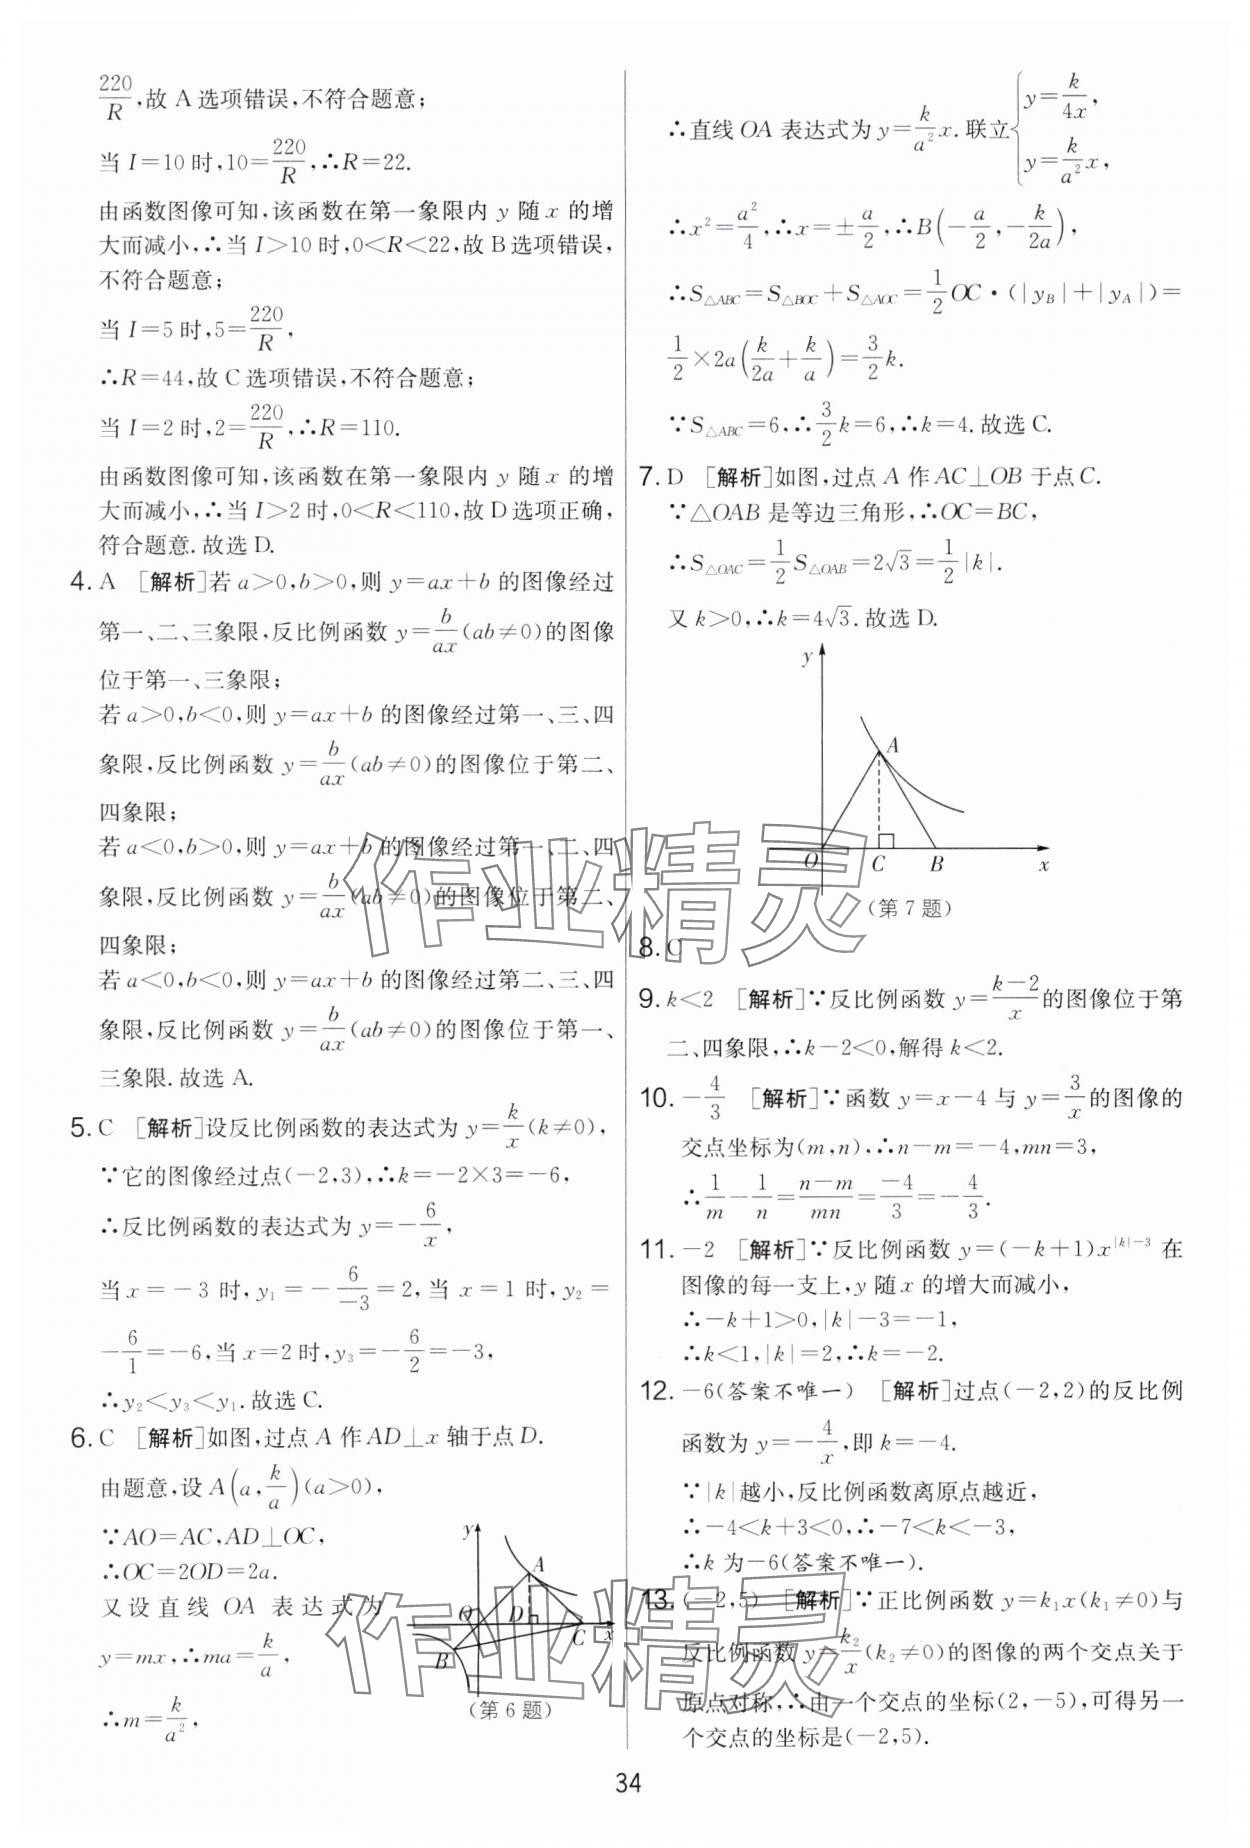 220/R,故 A 选项错误,不符合题意;
当 I=10 时,10=220/R,∴R=22.
由函数图像可知,该函数在第一象限内 y 随 x 的增
大而减小,∴当 I>10 时,0<R<22,故 B 选项错误,
不符合题意;
当 I=5 时,5=220/R,
∴R=44,故 C 选项错误,不符合题意;
当 I=2 时,2=220/R,∴R=110.
由函数图像可知,该函数在第一象限内 y 随 x 的增
大而减小,∴当 I>2 时,0<R<110,故 D 选项正确,
符合题意.故选 D.
4. A [解析]若 a>0,b>0,则 y=ax+b 的图像经过
第一、二、三象限,反比例函数 y=b/ax(ab≠0)的图像
位于第一、三象限;
若 a>0,b<0,则 y=ax+b 的图像经过第一、三、四
象限,反比例函数 y=b/ax(ab≠0)的图像位于第二、
四象限;
若 a<0,b>0,则 y=ax+b 的图像经过第一、二、四
象限,反比例函数 y=b/ax(ab≠0)的图像位于第二、
四象限;
若 a<0,b<0,则 y=ax+b 的图像经过第二、三、四
象限,反比例函数 y=b/ax(ab≠0)的图像位于第一、
三象限.故选 A.
5. C [解析]设反比例函数的表达式为 y=k/x(k≠0),
∵它的图像经过点(-2,3),∴k=-2×3=-6,
∴反比例函数的表达式为 y=-6/x,
当 x=-3 时,y₁=-6/-3=2,当 x=1 时,y₂=
-6/1=-6,当 x=2 时,y₃=-6/2=-3,
∴y₂<y₃<y₁.故选 C.
6. C [解析]如图,过点 A 作 AD⊥x 轴于点 D.
由题意,设 A(a,k/a)(a>0),
∵AO=AC,AD⊥OC,
∴OC=2OD=2a.
又设直线 OA 表达式为
y=mx,∴ma=k/a,
∴m=k/a²,
y
A
O
D
C
x
B
(第 6 题)
∴直线 OA 表达式为 y=k/a² x.联立{y=k/4x,
y=k/a² x,
∴x²=a²/4,∴x=±a/2,∴B(-a/2,-k/2a),
∴S△ABC=S△BOC+S△AOC=1/2 OC·(|yB|+|yA|)=
1/2×2a(k/2a+k/a)=3/2 k.
∵S△ABC=6,∴3/2 k=6,∴k=4.故选 C.
7. D [解析]如图,过点 A 作 AC⊥OB 于点 C.
∵△OAB 是等边三角形,∴OC=BC,
∴S△OAC=1/2 S△OAB=2√3=1/2|k|.
又 k>0,∴k=4√3.故选 D.
y
A
O
C
B
x
(第 7 题)
8. C
9. k<2 [解析]∵反比例函数 y=k-2/x 的图像位于第
二、四象限,∴k-2<0,解得 k<2.
10. -4/3 [解析]∵函数 y=x-4 与 y=3/x 的图像的
交点坐标为(m,n),∴n-m=-4,mn=3,
∴1/m-1/n=n-m/mn=-4/3=-4/3.
11. -2 [解析]∵反比例函数 y=(-k+1)x^|k|-3 在
图像的每一支上,y 随 x 的增大而减小,
∴-k+1>0,|k|-3=-1,
∴k<1,|k|=2,∴k=-2.
12. -6(答案不唯一) [解析]过点(-2,2)的反比例
函数为 y=-4/x,即 k=-4.
∵|k|越小,反比例函数离原点越近,
∴-4<k+3<0,∴-7<k<-3,
∴k 为-6(答案不唯一).
13. (-2,5) [解析]∵正比例函数 y=k₁x(k₁≠0)与
反比例函数 y=k₂/x(k₂≠0)的图像的两个交点关于
原点对称,∴由一个交点的坐标(2,-5),可得另一
个交点的坐标是(-2,5).
34
作业精灵
作业精灵